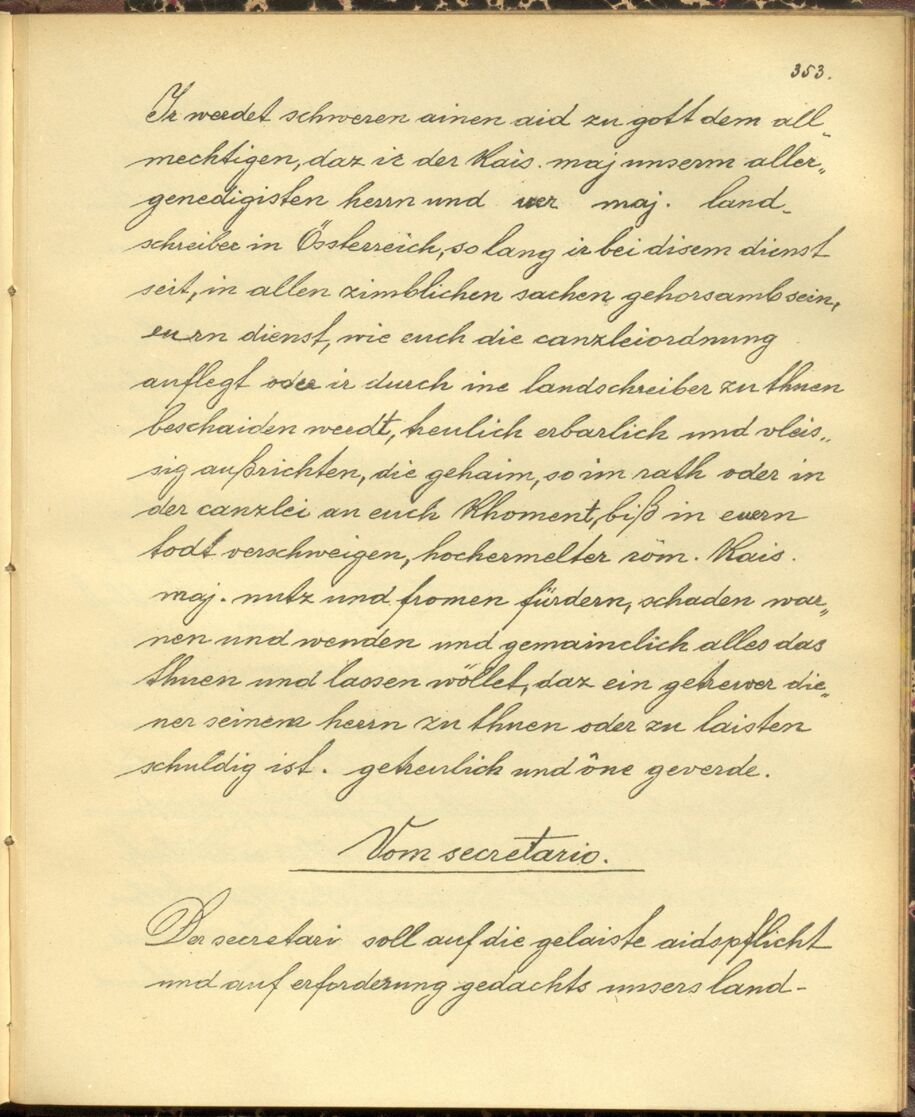 353.
Ir werdet schweren ainen aid zu gott dem all-
mechtigen, daz ir der Kais. maj unserm aller„
genedigisten herrn und irer maj. land-
schreiber in Össterreich, so lang ir bei disem dienst
seit, in allen zimblichen sachen gehorsamb sein,
eurn dienst, wie euch die canzleiordnung
auflegt oder ir durch ine landschreiber zu thuen
beschaiden werdt, treulich erbarlich und vleis„
sig außrichten, die gehaim, so im rath oder in
der canzlei an euch khoment, biß in euern
todt verschweigen, hochermelter röm. Kais.
maj. nutz und fromen fürdern, schaden war„
nen und wenden und gemainclich alles das
thuen und lassen wöllet, daz ein getrewer die„
ner seinem herrn zu thuen oder zu laisten
schuldig ist. getreulich und öne geverde.
Vom secretario.
Der secretari soll auf die gelaiste aidspflicht
und auf erforderung gedachts unsers land-